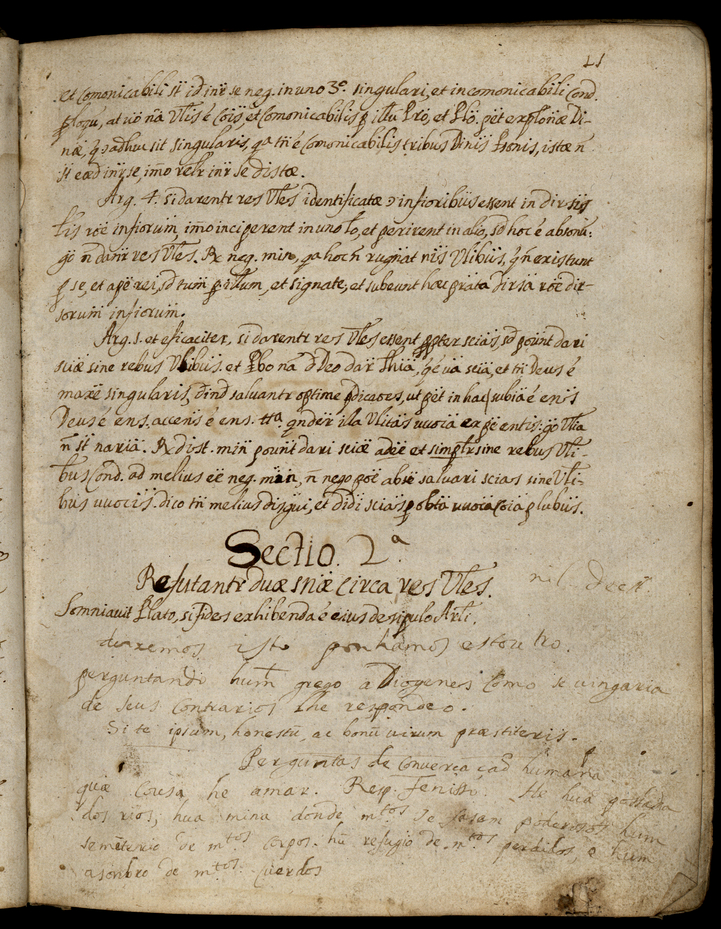 11
et comonicabili st id inr se neg. in uno 3º singulari, et incomonicabili Cond.
at vº na Vlis é Cois et Comonicabilis p illu Pro, et Plo. pet Di-
næ, adhuc sit singularis, qa tn é Comonicabilis tribus Dinis Psonis, istæ n
st eæd inr se, imo relr inr se distæ.
Arg. 4. si darentr res Vles identificatæ infioribus essent in
lis roe infiorum, imo inciperent in uno lo, et perirent in alio, sd hoc é absonu:
go n danr res Vles. R neg. min, qa hoc n rugnat nis Vlibus, qn existunt
p se, et a pe rei, sd tum p illum, et signate, et subeunt hæc prata dirsa roe dir-
sorum infiorum.
Arg. s. et eficaciter, si darentr res Vles essent ppter scias, sd pount dari
sciæ sine rebus Vlibus. et Pbo na d Deo dar thia, q é va scia, et tn Deus é
maxe singularis, dind saluantr optime pdicaoes, ut pet in hac subia é ens
Deus é ens. accens é ens. illa Vlitas vuoca ex pe entis: go Vlia
n st naria. R dist. min pount dari sciæ adee et simplr sine rebus Vli-
bus Cond. ad melius ee neg. min, n nego poe abse saluari scias sine Vli-
bus vuocis. dico tn melius disgui, et didi scias p obta vuoca Coia plubus.
Sectio. 2ª
Refutantr duæ sniæ Circa res Vles.
Somniauit Plato, si fides exhibenda é eius desipulo Arti.
deixemos isto ponhamos estoutro.
perguntando hum grego a Diogenes Como se uingaria
de seus Contrarios lhe respondeo.
Si te ipsum, honestu, ac bonu uirum præstiteris.
Perguntas de Converca çaõ humana
que Cousa he amar. Resp. Fenisso. He hua
dos rios, hua mina donde mtos se fasam poderosos hum
semeterio de mtos Corpos. hu refugio de mtos perditos, e hum
asonbro de mtos Cuerdos